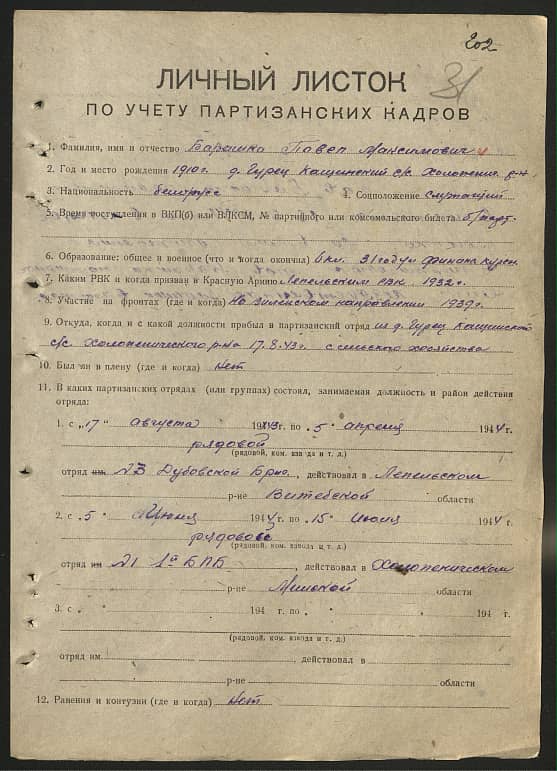 202
31
ЛИЧНЫЙ ЛИСТОК
ПО УЧЕТУ ПАРТИЗАНСКИХ КАДРОВ
1. Фамилия, имя и отчество Барашко Павел Максимович
2. Год и место рождения 1910 г. д. Гурец Кащинский с/с Холопенич. р-н
3. Национальность белорусс 4. Соцположение служащий
5. Время поступления в ВКП(б) или ВЛКСМ, № партийного или комсомольского билета б/парт.
6. Образование: общее и военное (что и когда окончил) 6 кл. 31 году финанс курсы
7. Каким РВК и когда призван в Красную Армию Лепельским РВК 1932 г.
8. Участие на фронтах (где и когда) На виленском направлении 1939 г.
9. Откуда, когда и с какой должности прибыл в партизанский отряд из д. Гурец Кащинский
с/с. Холопенического р-на 17.8.43 г. с сельского хозяйства
10. Был ли в плену (где и когда) Нет
11. В каких партизанских отрядах (или группах) состоял, занимаемая должность и район действия
отряда:
1. с „17“ августа 1943 г. по „5“ апреля 1944 г.
рядовой
(рядовой, ком. взвода и т. д.)
отряд им. №3 Дубовской Бриг., действовал в Лепельском
р-не Витебской области
2. с „5“ Июня 1944 г. по „15“ Июля 1944 г.
рядовой
(рядовой, ком. взвода и т. д.)
отряд им. №1 1ª БПБ, действовал в Холопеническом
р-не Минской области
3. с „ “ 194 г. по „ “ 194 г.
(рядовой, ком. взвода и т. д.)
отряд им. , действовал в
р-не области
12. Ранения и контузии (где и когда) Нет